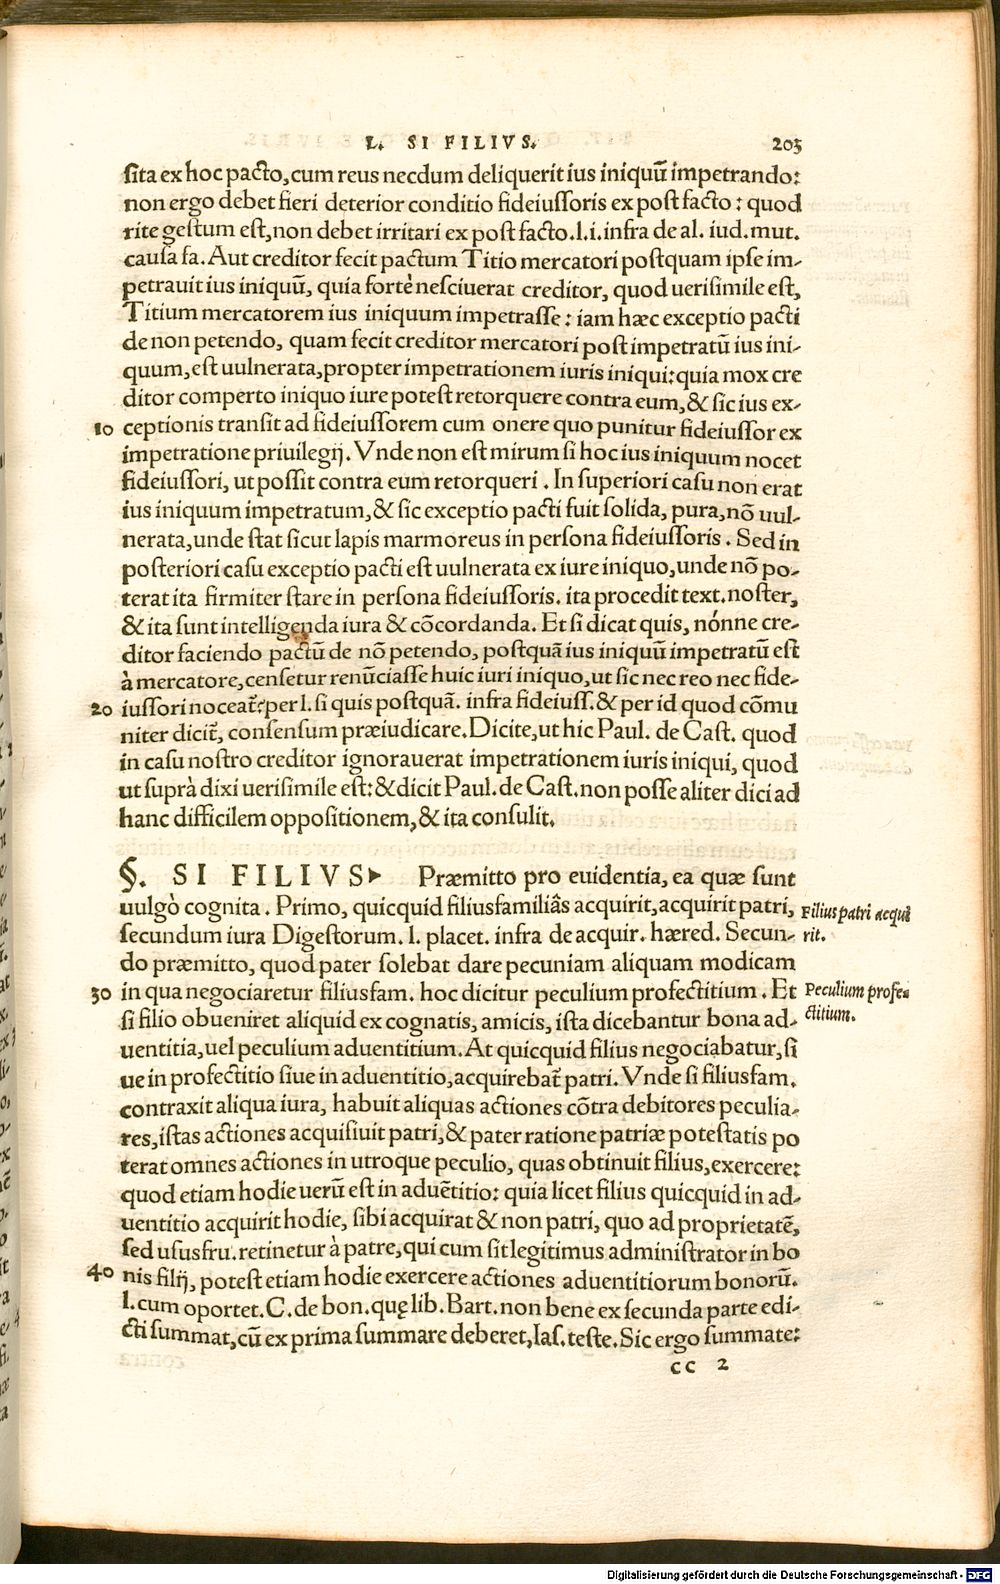 L. SI FILIVS. 203
sita ex hoc pacto, cum reus necdum deliquerit ius iniquū impetrando:
non ergo debet fieri deterior conditio fideiussoris ex post facto: quod
rite gestum est, non debet irritari ex post facto. l. i. infra de al. iud. mut.
causa fa. Aut creditor fecit pactum Titio mercatori postquam ipse im-
petrauit ius iniquū, quia fortè nesciuerat creditor, quod uerisimile est,
Titium mercatorem ius iniquum impetrasse: iam hæc exceptio pacti
de non petendo, quam fecit creditor mercatori post impetratū ius ini-
quum, est uulnerata, propter impetrationem iuris iniqui: quia mox cre
ditor comperto iniquo iure potest retorquere contra eum, & sic ius ex-
10 ceptionis transit ad fideiussorem cum onere quo punitur fideiussor ex
impetratione priuilegij. Vnde non est mirum si hoc ius iniquum nocet
fideiussori, ut possit contra eum retorqueri. In superiori casu non erat
ius iniquum impetratum, & sic exceptio pacti fuit solida, pura, nō uul-
nerata, unde stat sicut lapis marmoreus in persona fideiussoris. Sed in
posteriori casu exceptio pacti est uulnerata ex iure iniquo, unde nō po-
terat ita firmiter stare in persona fideiussoris. ita procedit text. noster,
& ita sunt intelligenda iura & cōcordanda. Et si dicat quis, nónne cre-
ditor faciendo pactū de nō petendo, postquā ius iniquū impetratū est
à mercatore, censetur renūciasse huic iuri iniquo, ut sic nec reo nec fide-
20 iussori noceat̄? per l. si quis postquā. infra fideiuss. & per id quod cōmu
niter dicit̄, consensum præiudicare. Dicite, ut hic Paul. de Cast. quod
in casu nostro creditor ignorauerat impetrationem iuris iniqui, quod
ut suprà dixi uerisimile est: & dicit Paul. de Cast. non posse aliter dici ad
hanc difficilem oppositionem, & ita consulit.
§. SI FILIVS▸ Præmitto pro euidentia, ea quæ sunt
uulgò cognita. Primo, quicquid filiusfamiliâs acquirit, acquirit patri, Filius patri acqui
secundum iura Digestorum. l. placet. infra de acquir. hæred. Secun- rit.
do præmitto, quod pater solebat dare pecuniam aliquam modicam
30 in qua negociaretur filiusfam. hoc dicitur peculium profectitium. Et Peculium profe-
si filio obueniret aliquid ex cognatis, amicis, ista dicebantur bona ad- ctitium.
uentitia, uel peculium aduentitium. At quicquid filius negociabatur, si
ue in profectitio siue in aduentitio, acquirebat̄ patri. Vnde si filiusfam.
contraxit aliqua iura, habuit aliquas actiones cōtra debitores peculia-
res, istas actiones acquisiuit patri, & pater ratione patriæ potestatis po
terat omnes actiones in utroque peculio, quas obtinuit filius, exercere:
quod etiam hodie uerū est in aduētitio: quia licet filius quicquid in ad-
uentitio acquirit hodie, sibi acquirat & non patri, quo ad proprietatē,
sed ususfru. retinetur à patre, qui cum sit legitimus administrator in bo
40 nis filij, potest etiam hodie exercere actiones aduentitiorum bonorū.
l. cum oportet. C. de bon. quę lib. Bart. non bene ex secunda parte edi-
cti summat, cū ex prima summare deberet, Ias. teste. Sic ergo summate:
CC 2
Digitalisierung gefördert durch die Deutsche Forschungsgemeinschaft - DFG